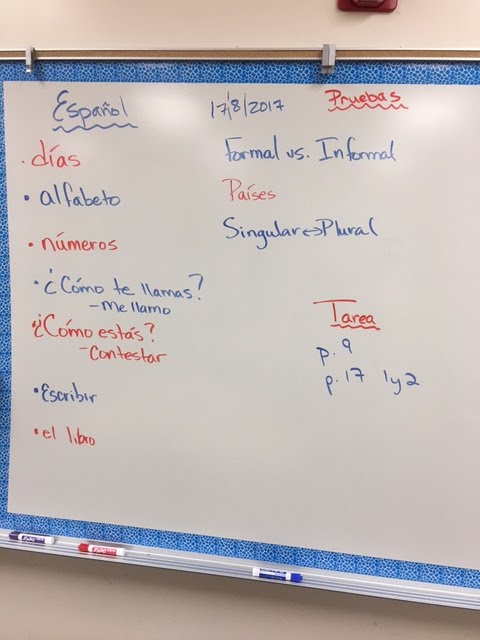 Español
17/8/2017
Pruebas
· días
Formal vs. Informal
• alfabeto
Países
• números
Singular↔Plural
• ¿Cómo te llamas?
- Me llamo
¿Cómo estás?
- Contestar
Tarea
p. 9
p. 17 1y2
• Escribir
• el libro
EXPO